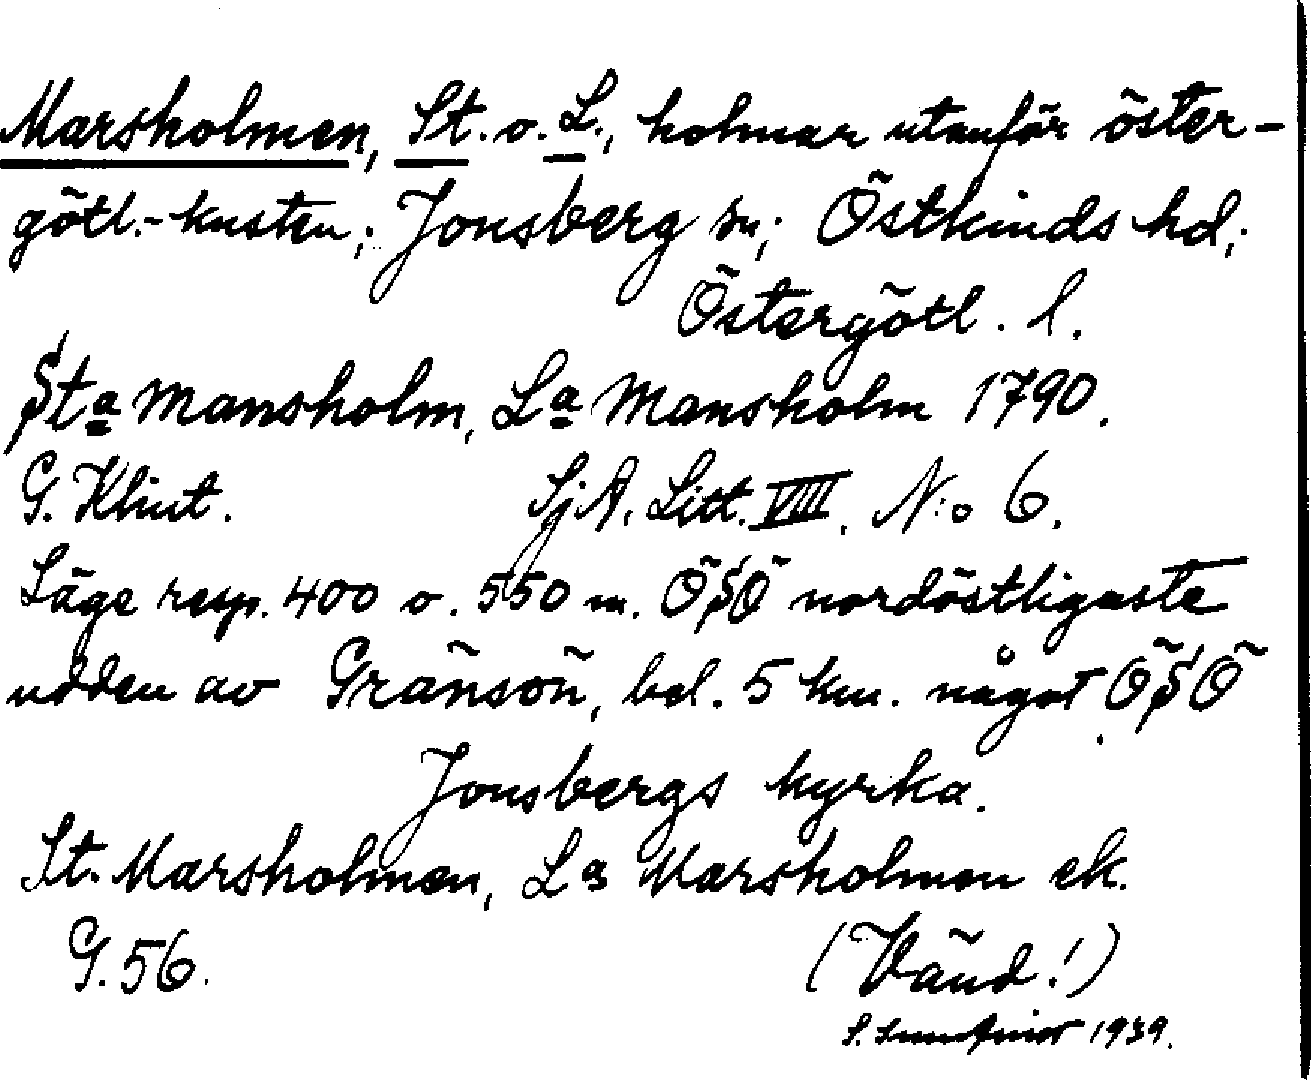 Marsholmen, St. o. L., holmar utanför öster-
götl.-kusten; Jonsberg sn; Östkinds hd;
Östergötl. l.
Sta Mansholm, La Mansholm 1790.
G. Klint. SjA. Litt. VIII. N:o 6.
Läge resp. 400 o. 550 m. ÖSÖ nordöstligaste
udden av Gränsön, bel. 5 km. något ÖSÖ
Jonsbergs kyrka.
St. Marsholmen, La Marsholmen ek.
G. 56. (Vänd!)
S. 1939.